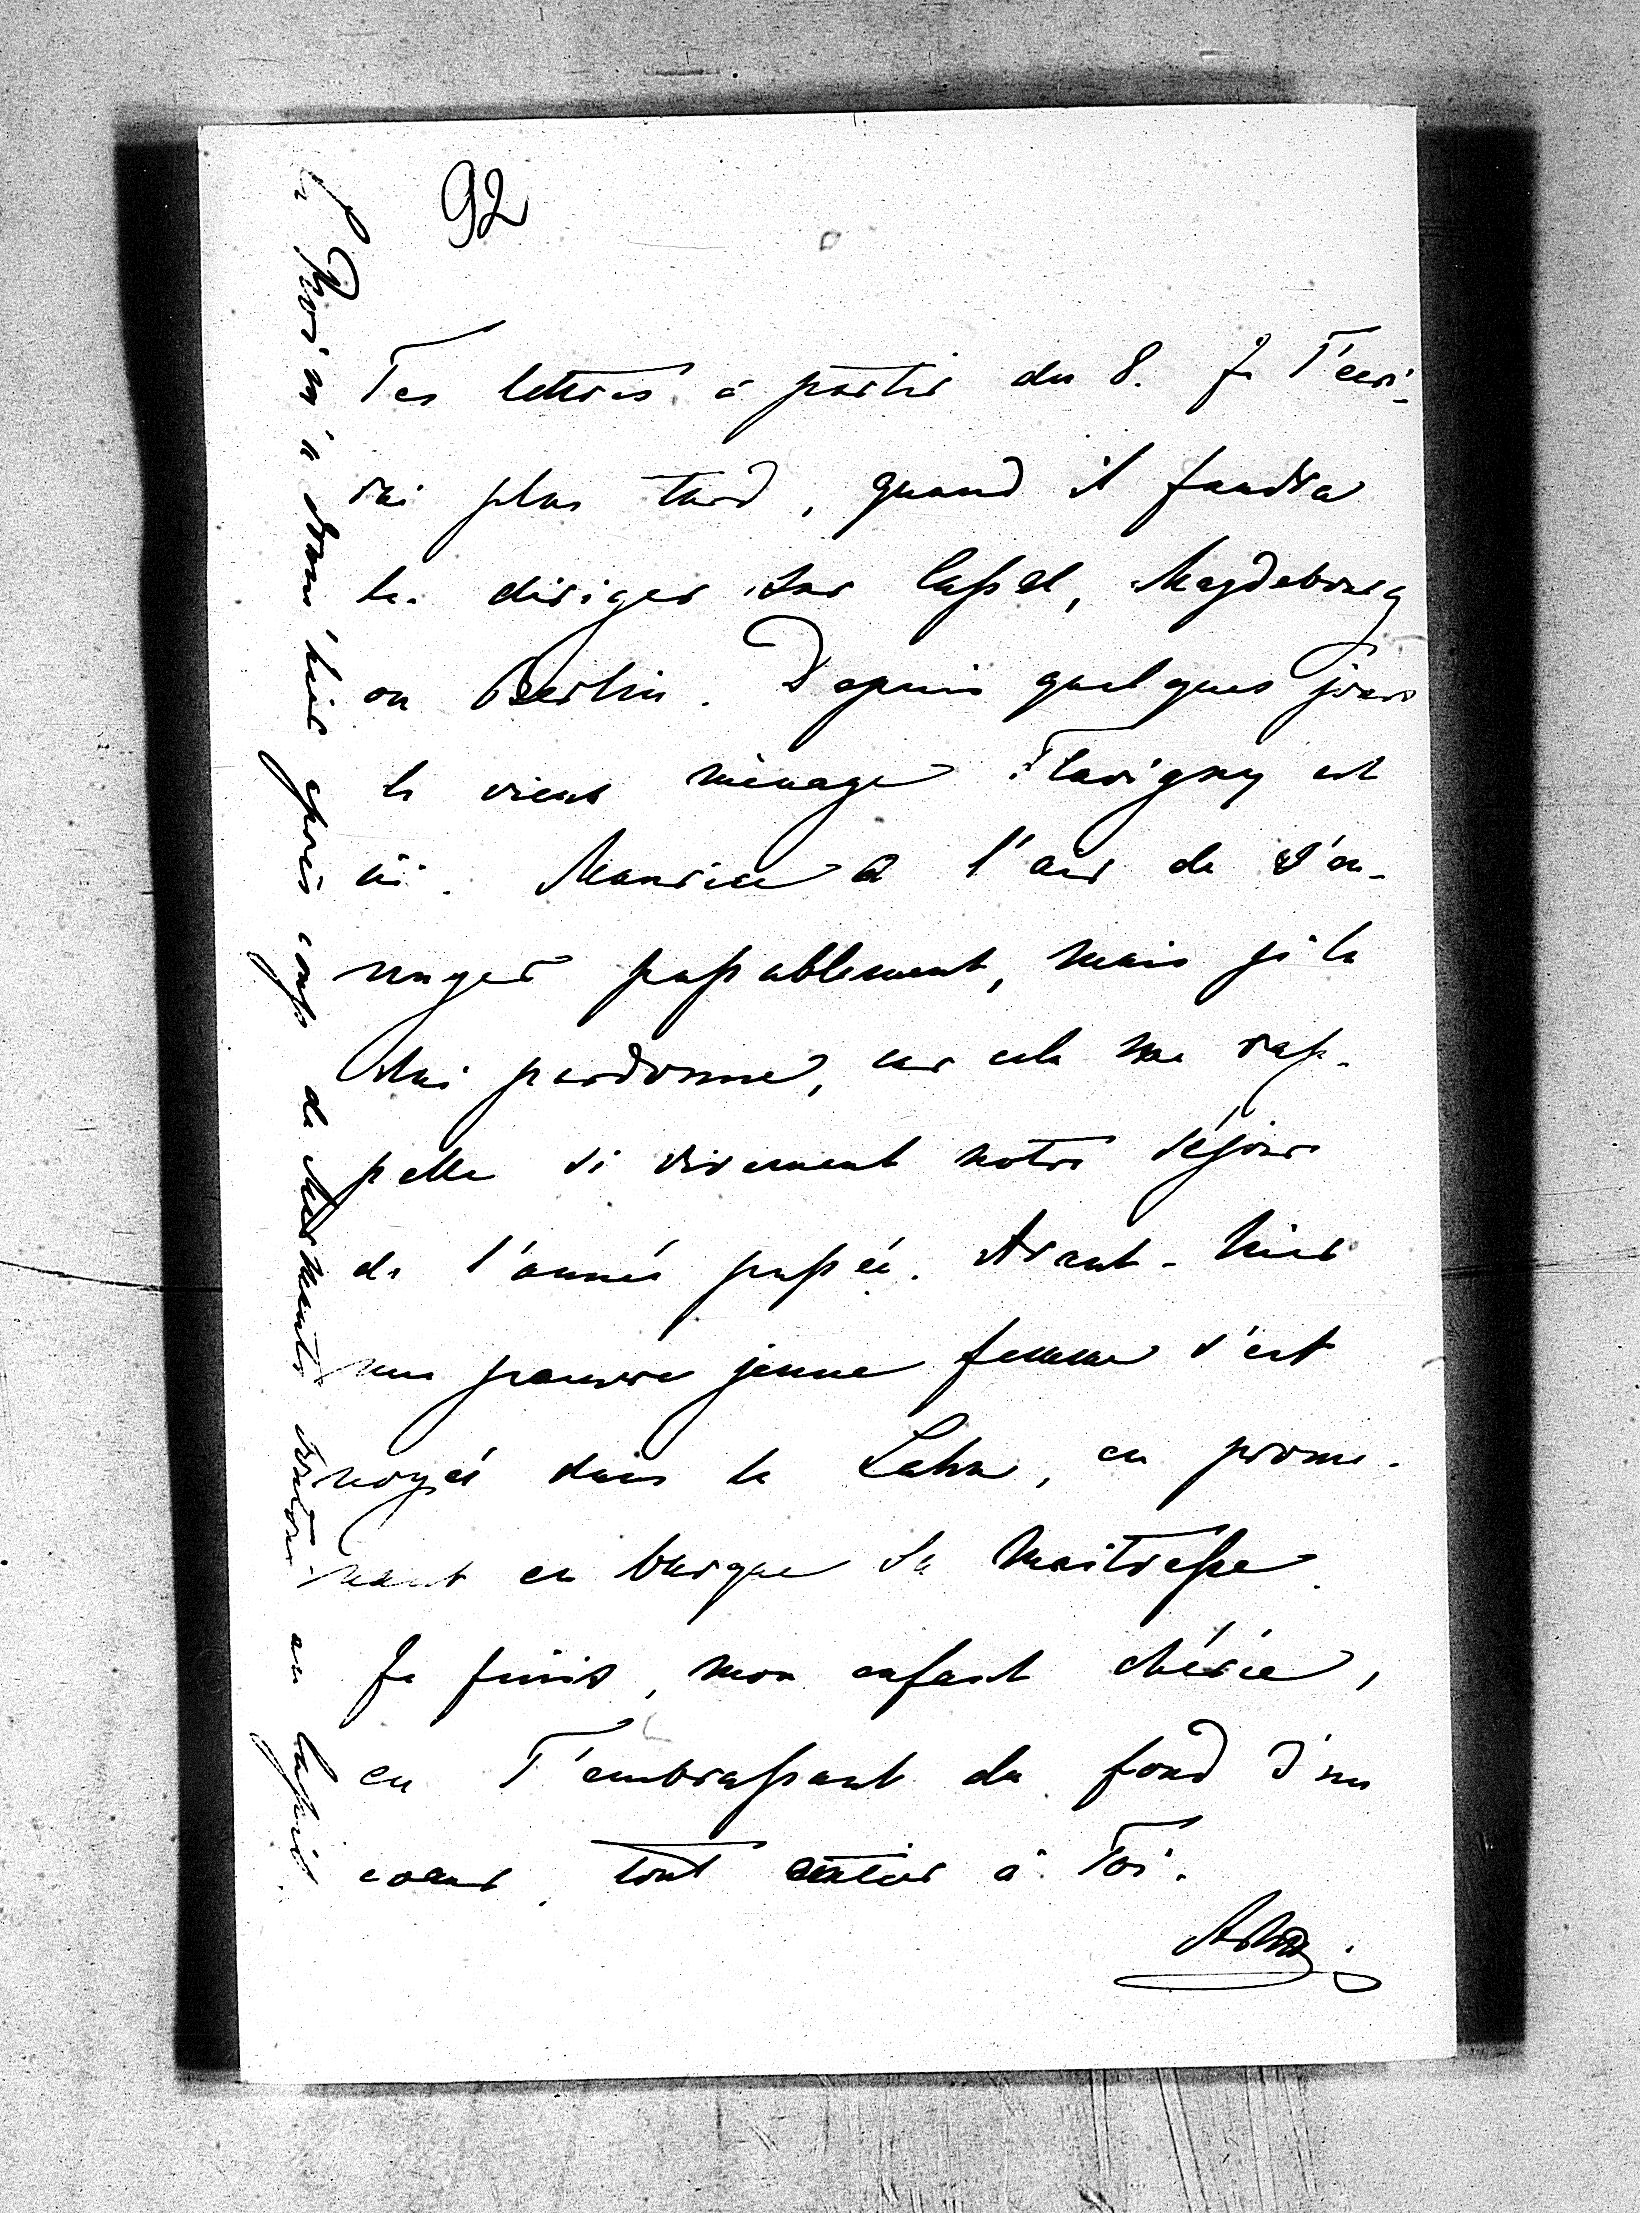 92
Tes lettres à partir du 8. Je T'écri-
rai plus tard, quand il faudra
les diriger sur Cassel, Magdebourg
ou Berlin. Depuis quelques jours
le vieux ménage Flavigny est
ici. Maurice a l'air de s'en-
nuyer passablement, mais je le
lui pardonne, car cela me rap-
pelle si vivement notre séjour
de l'année passée. Avant-hier
une pauvre jeune femme s'est
noyée dans la Lahn, en prome-
nant en barque sa maitresse.
Je finis, mon enfant chérie,
en T'embrassant du fond d'un
coeur tout entier à Toi.
le Roi m'a donné hier après coup de